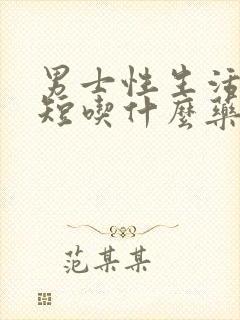 男士性生活
短喫什麽藥
范某某